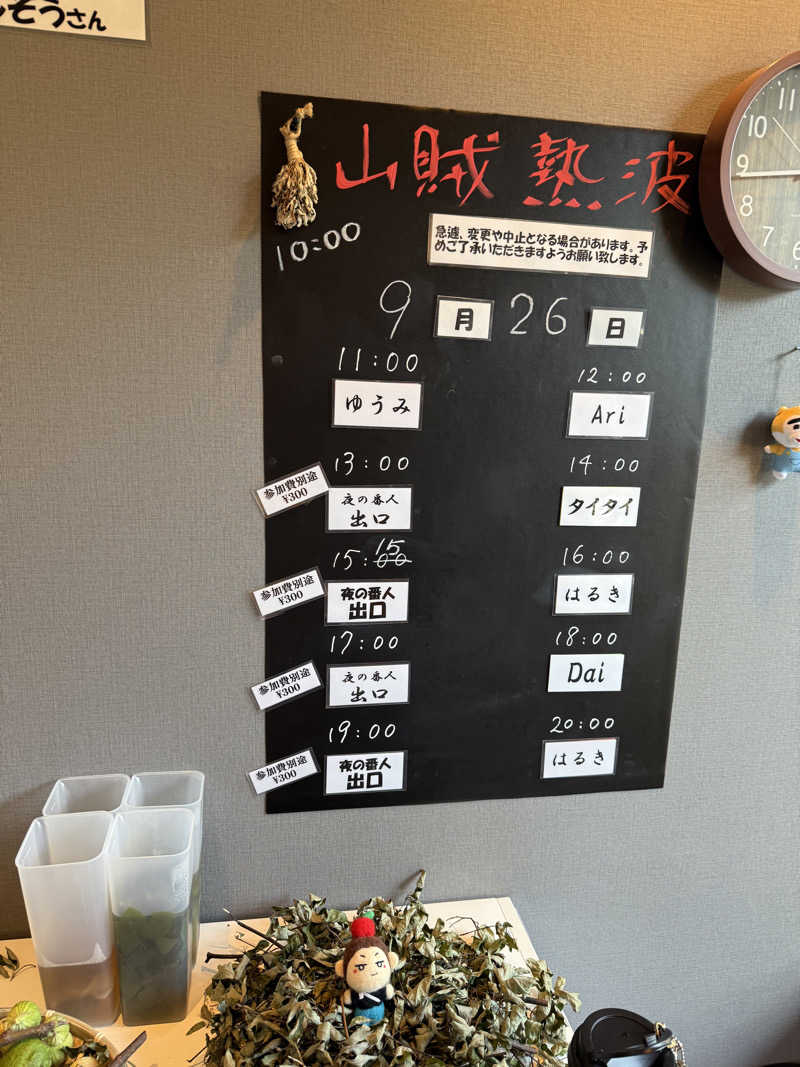 そうさん
山賊熱波
10:00
急遽、変更や中止となる場合があります。予
めご了承いただきますようお願い致します。
9月26日
11:00
ゆうみ
12:00
Ari
13:00
参加費別途
¥300
夜の番人
出口
14:00
タイタイ
15:15
00
参加費別途
¥300
夜の番人
出口
16:00
はるき
17:00
参加費別途
¥300
夜の番人
出口
18:00
Dai
19:00
参加費別途
¥300
夜の番人
出口
20:00
はるき
11
10
9
8
7
6